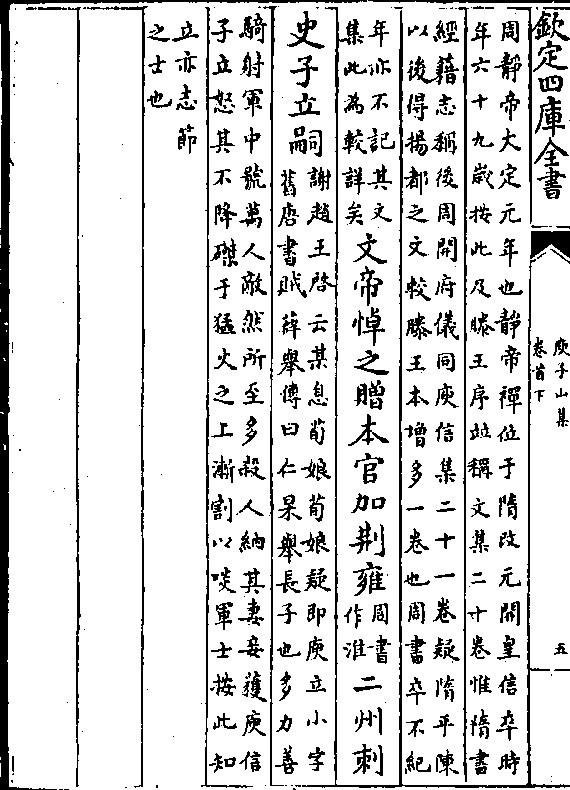 欽定四庫全書
庾子山集
卷首下
五
周靜帝大定元年也靜帝禪位于隋改元開皇信卒時
年六十九歲按此及滕王序竝稱文集二十卷惟隋書
經籍志稱後周開府儀同庾信集二十一卷疑隋平陳
以後得揚都之文較滕王本增多一卷也周書卒不紀
年亦不記其文
集此為較詳矣
文帝悼之贈本官加荆雍
周書
作淮
二州刺
史子立嗣
謝趙王啓云某息荀娘荀娘疑即庾立小字
舊唐書賊薛舉傳曰仁杲舉長子也多力善
騎射軍中號萬人敵然所至多殺人納其妻妾獲庾信
子立怒其不降磔于猛火之上漸割以啖軍士按此知
立亦志節
之士也